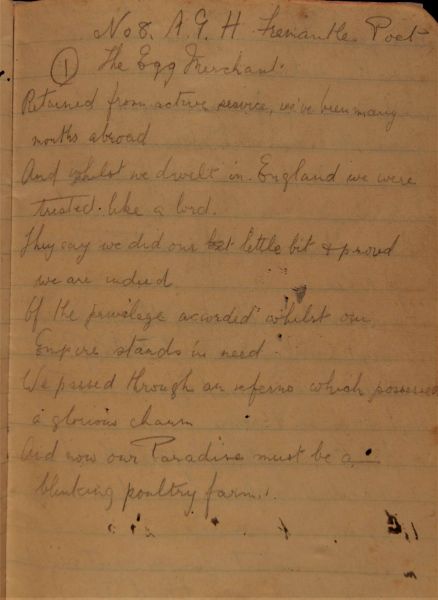 No 8. A.G.H Fremantle. Poet
1 The Egg Merchant.
Returned from active service, we've been many
months abroad
And whilst we dwelt in England we were
treated like a lord.
They say we did our little bit & proud
we are indeed
Of the privilege accorded whilst our
Empire stands in need.
We passed through an inferno which possesses
a glorious charm
And now our Paradise must be a
blinking poultry farm.